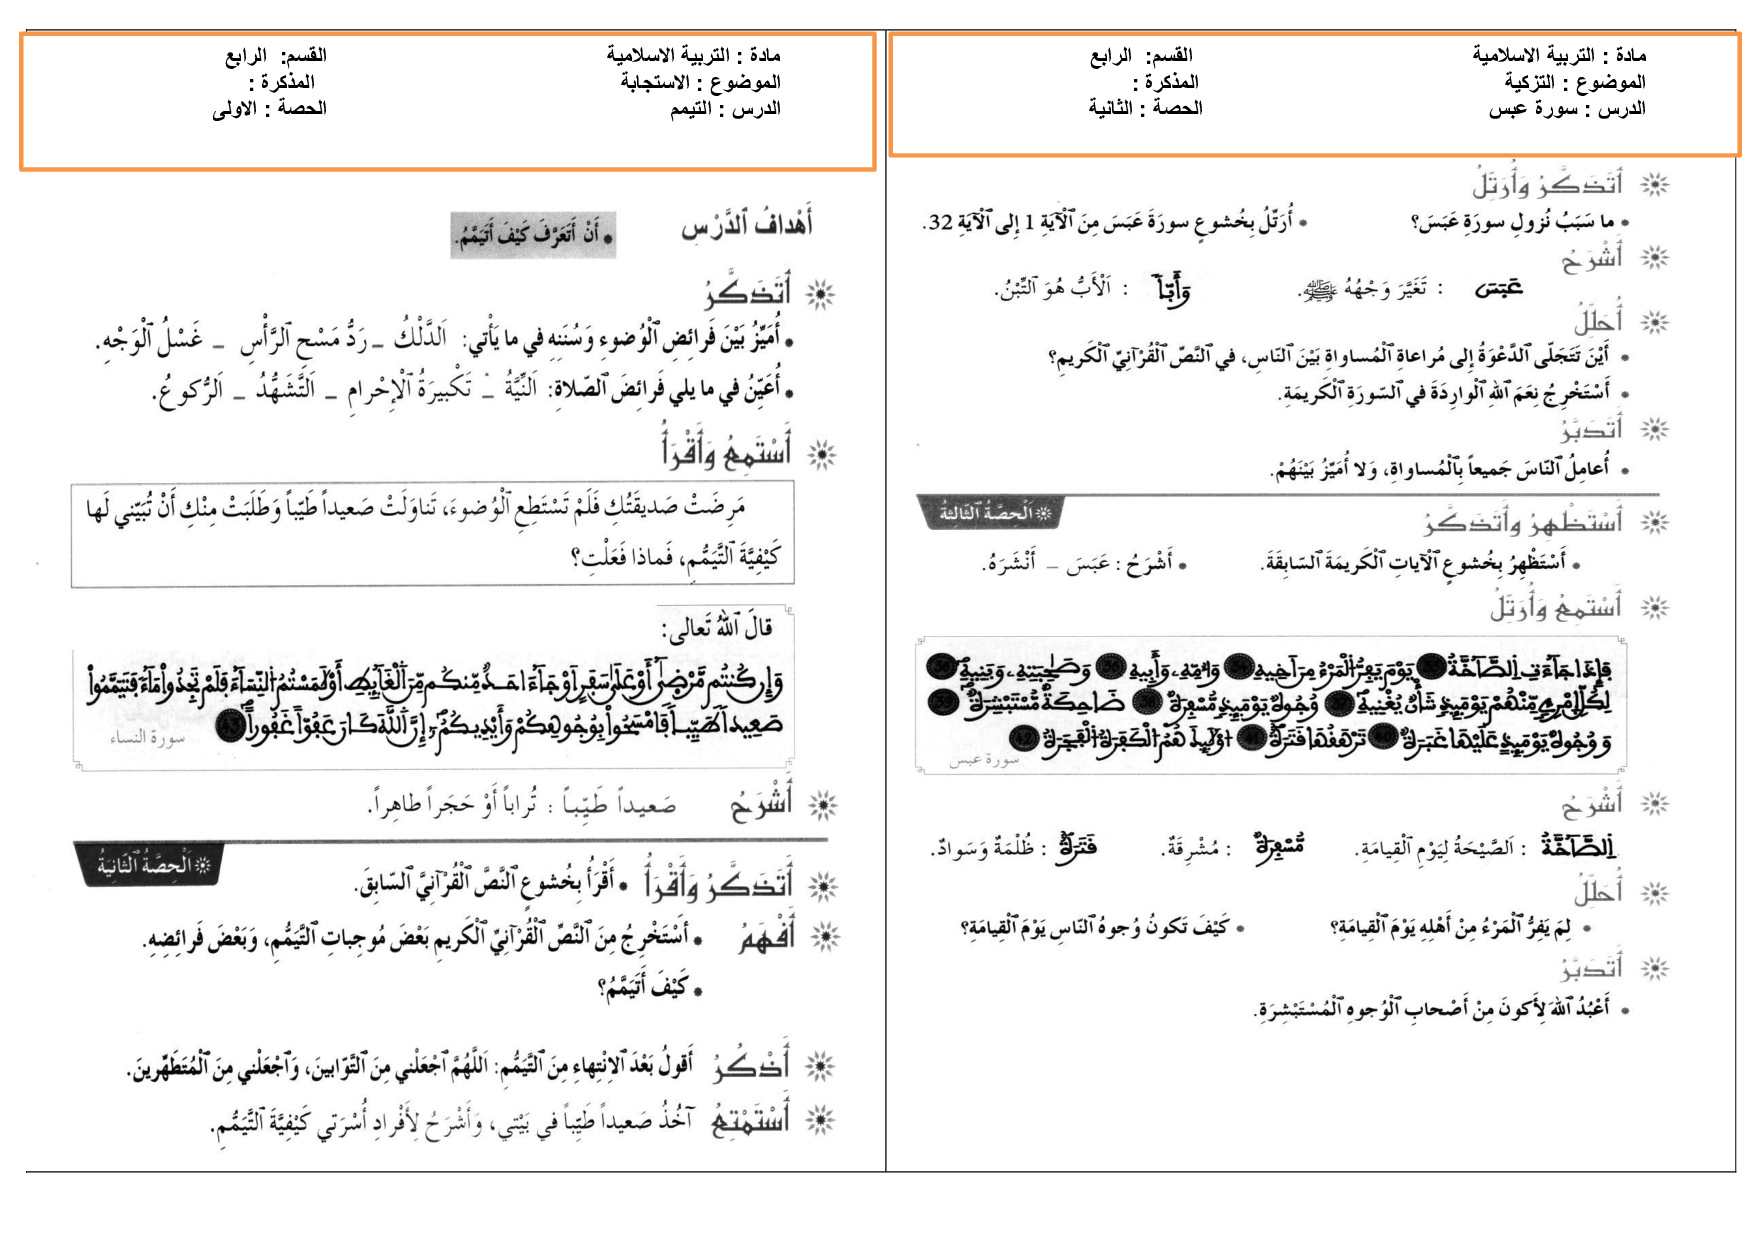 مادة : التربية الاسلامية القسم: الرابع
الموضوع : التزكية المذكرة :
الدرس : سورة عبس الحصة : الثانية
أَتَذَكَّرُ وَأُرَتِّلُ
• ما سَبَبُ نُزولِ سورَةِ عَبَسَ؟ • أُرَتِّلُ بِخُشوعٍ سورَةَ عَبَسَ مِنَ ٱلْآيَةِ 1 إلى ٱلْآيَةِ 32.
أَشْرَحُ
عَبَسَ : تَغَيَّرَ وَجْهُهُ ﷺ. وَأَبّاً : اَلْأَبُّ هُوَ ٱلتِّبْنُ.
أُحَلِّلُ
• أَيْنَ تَتَجَلّى ٱلدَّعْوَةُ إلى مُراعاةِ ٱلْمُساواةِ بَيْنَ ٱلنّاسِ، في ٱلنَّصِّ ٱلْقُرْآنِيِّ ٱلْكَريمِ؟
• أَسْتَخْرِجُ نِعَمَ ٱللهِ ٱلْوارِدَةَ في ٱلسّورَةِ ٱلْكَريمَةِ.
أَتَدَبَّرُ
• أُعامِلُ ٱلنّاسَ جَميعاً بِٱلْمُساواةِ، وَلا أُمَيِّزُ بَيْنَهُمْ.
اَلْحِصَّةُ ٱلثّالِثَةُ
أَسْتَظْهِرُ وَأَتَذَكَّرُ
• أَسْتَظْهِرُ بِخُشوعٍ ٱلْآياتِ ٱلْكَريمَةَ ٱلسّابِقَةَ. • أَشْرَحُ : عَبَسَ – أَنْشَرَهُ.
أَسْتَمِعُ وَأُرَتِّلُ
فَإِذَا جَآءَتِ اِ۬لصَّآخَّةُ 33 يَوْمَ يَفِرُّ اُ۬لْمَرْءُ مِنَ اَخِيهِ 34 وَأُمِّهِۦ وَأَبِيهِ 35 وَصَٰحِبَتِهِۦ وَبَنِيهِ 36
لِكُلِّ اِ۪مْرِےٕٖ مِّنْهُمْ يَوْمَئِذٖ شَأْنٞ يُغْنِيهِ 37 وُجُوهٞ يَوْمَئِذٖ مُّسْفِرَةٞ 38 ضَاحِكَةٞ مُّسْتَبْشِرَةٞ 39
وَوُجُوهٞ يَوْمَئِذٍ عَلَيْهَا غَبَرَةٞ 40 تَرْهَقُهَا قَتَرَةٌ 41 ا۟وْلَٰٓئِكَ هُمُ اُ۬لْكَفَرَةُ اُ۬لْفَجَرَةُ 42
سورة عبس
أَشْرَحُ
اِ۬لصَّآخَّةُ : اَلصَّيْحَةُ لِيَوْمِ ٱلْقِيامَةِ. مُّسْفِرَةٞ : مُشْرِقَةٌ. قَتَرَةٌ : ظُلْمَةٌ وَسَوادٌ.
أُحَلِّلُ
• لِمَ يَفِرُّ ٱلْمَرْءُ مِنْ أَهْلِهِ يَوْمَ ٱلْقِيامَةِ؟ • كَيْفَ تَكونُ وُجوهُ ٱلنّاسِ يَوْمَ ٱلْقِيامَةِ؟
أَتَدَبَّرُ
• أَعْبُدُ ٱللهَ لِأَكونَ مِنْ أَصْحابِ ٱلْوُجوهِ ٱلْمُسْتَبْشِرَةِ.
مادة : التربية الاسلامية القسم: الرابع
الموضوع : الاستجابة المذكرة :
الدرس : التيمم الحصة : الاولى
أَهْدافُ ٱلدَّرْسِ • أَنْ أَتَعَرَّفَ كَيْفَ أَتَيَمَّمُ.
أَتَذَكَّرُ
• أُمَيِّزُ بَيْنَ فَرائِضِ ٱلْوُضوءِ وَسُنَنِهِ في ما يَأْتي: اَلدَّلْكُ – رَدُّ مَسْحِ ٱلرَّأْسِ – غَسْلُ ٱلْوَجْهِ.
• أُعَيِّنُ في ما يلي فَرائِضَ ٱلصَّلاةِ: اَلنِّيَّةُ – تَكْبيرَةُ ٱلْإِحْرامِ – اَلتَّشَهُّدُ – اَلرُّكوعُ.
أَسْتَمِعُ وَأَقْرَأُ
مَرِضَتْ صَديقَتُكِ فَلَمْ تَسْتَطِعِ ٱلْوُضوءَ، تَناوَلَتْ صَعيداً طَيِّباً وَطَلَبَتْ مِنْكِ أَنْ تُبَيِّني لَها
كَيْفِيَّةَ ٱلتَّيَمُّمِ، فَماذا فَعَلْتِ؟
قالَ ٱللهُ تَعالى:
وَإِن كُنتُم مَّرْضَىٰٓ أَوْ عَلَىٰ سَفَرٍ اَوْ جَآءَ احَدٞ مِّنكُم مِّنَ اَ۬لْغَآئِطِ أَوْ لَٰمَسْتُمُ اُ۬لنِّسَآءَ فَلَمْ تَجِدُوا۟ مَآءٗ فَتَيَمَّمُوا۟
صَعِيدٗا طَيِّبٗا فَامْسَحُوا۟ بِوُجُوهِكُمْ وَأَيْدِيكُمُۥٓ إِنَّ اَ۬للَّهَ كَانَ عَفُوّاً غَفُوراً 43
سورة النساء
أَشْرَحُ صَعيداً طَيِّباً : تُراباً أَوْ حَجَراً طاهِراً.
اَلْحِصَّةُ ٱلثّانِيَةُ
أَتَذَكَّرُ وَأَقْرَأُ • أَقْرَأُ بِخُشوعٍ ٱلنَّصَّ ٱلْقُرْآنِيَّ ٱلسّابِقَ.
أَفْهَمُ • أَسْتَخْرِجُ مِنَ ٱلنَّصِّ ٱلْقُرْآنِيِّ ٱلْكَريمِ بَعْضَ مُوجِباتِ ٱلتَّيَمُّمِ، وَبَعْضَ فَرائِضِهِ.
• كَيْفَ أَتَيَمَّمُ؟
أَذْكُرُ أَقولُ بَعْدَ ٱلِانْتِهاءِ مِنَ ٱلتَّيَمُّمِ: اَللَّهُمَّ ٱجْعَلْني مِنَ ٱلتَّوّابينَ، وَٱجْعَلْني مِنَ ٱلْمُتَطَهِّرينَ.
أَسْتَمْتِعُ آخُذُ صَعيداً طَيِّباً في بَيْتي، وَأَشْرَحُ لِأَفْرادِ أُسْرَتي كَيْفِيَّةَ ٱلتَّيَمُّمِ.